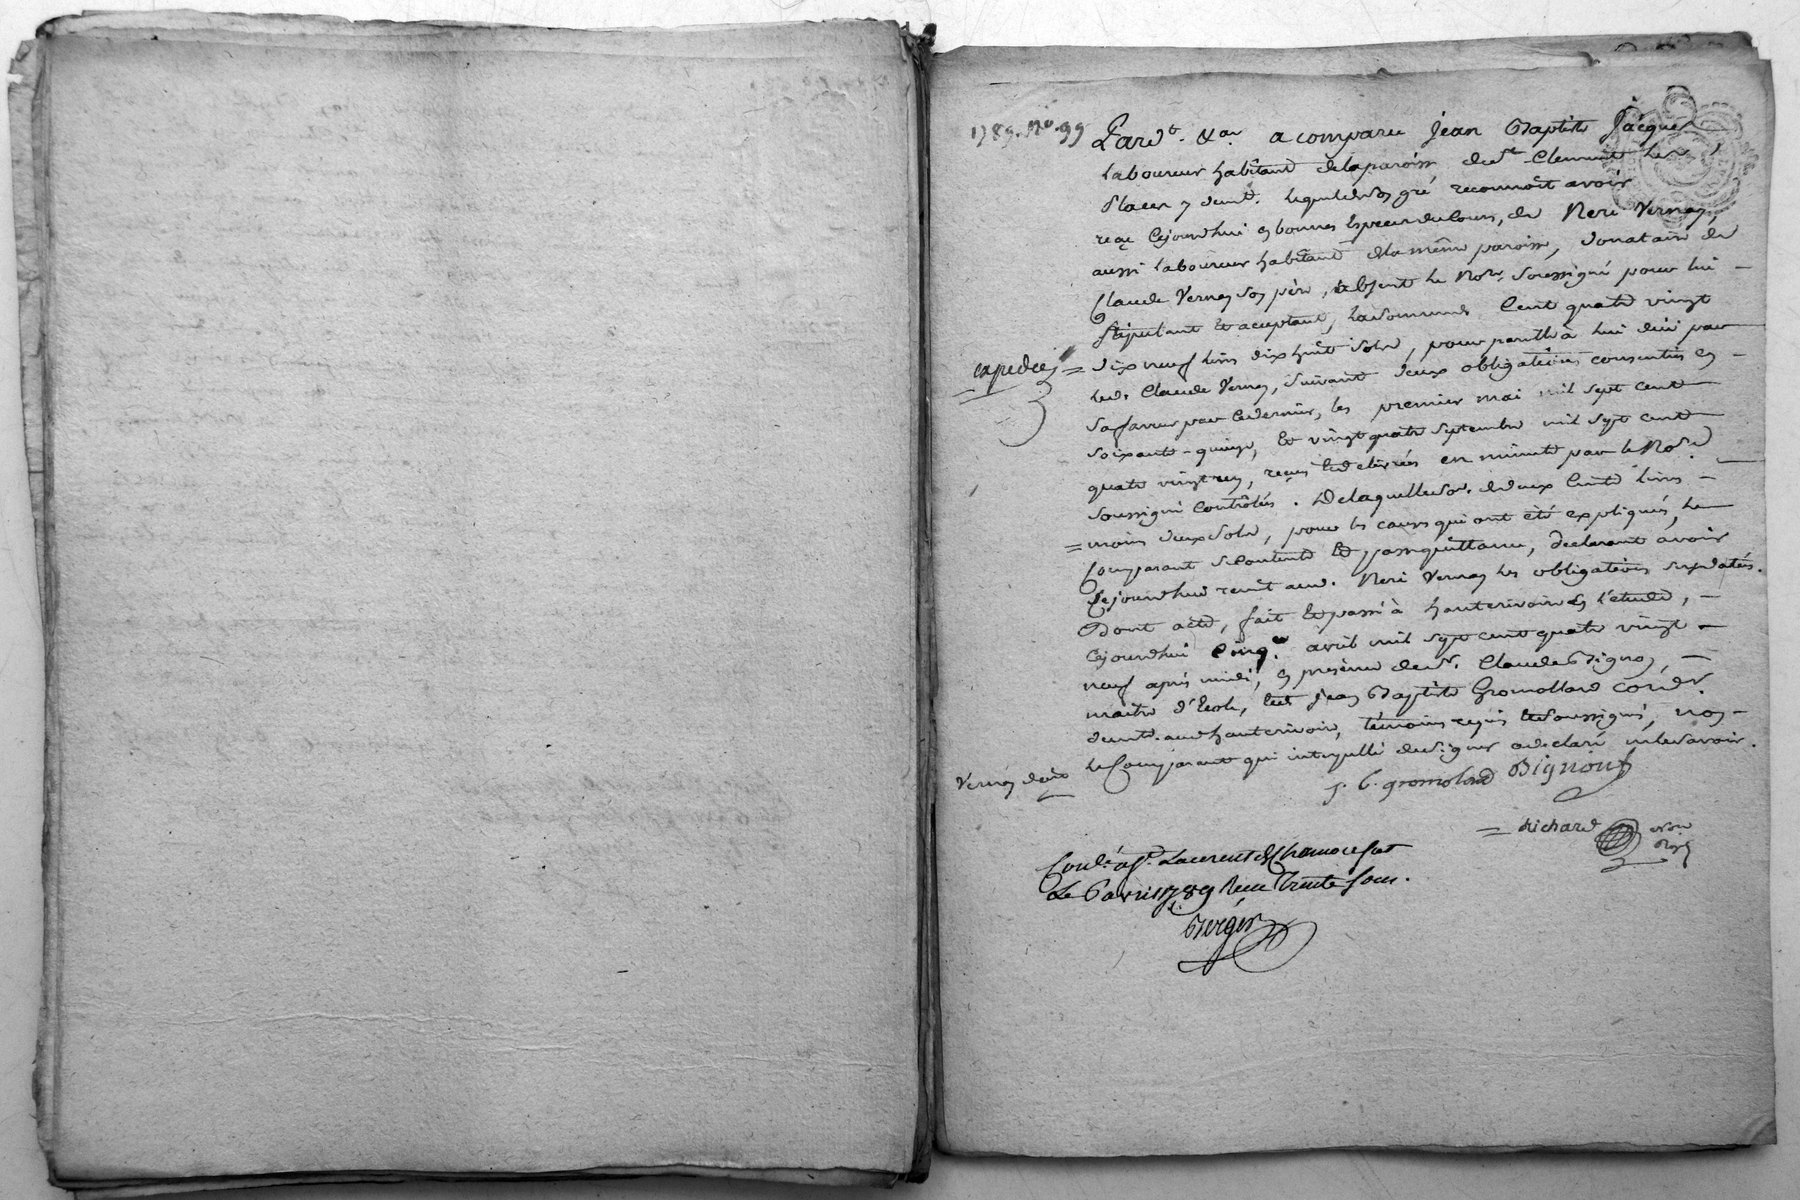 1789. No. 99
Pardt. &ar. a comparu Jean Baptiste Jacques
Laboureur habitant dela paroisse de st. Clement les
places y demt. lequel de son gré reconnoit avoir
reçu cejourdhui en bonnes especes du cours, de Neri Vernay,
aussi laboureur habitant de la même paroisse, donataire de
Claude Vernay son père, absent le Nore. soussigné pour lui
stipulant et acceptant, la somme de Cent quatre vingt
expediée
dix neuf livres dix huit sols, pour pareille à lui due par
led. Claude Vernay, suivant deux obligations consenties en
sa faveur par ce dernier, les premier mai mil sept cent
soixante-quinze, et vingt quatre septembre mil sept cent
quatre vingt un, reçues et delivrées en minute par le Nore.
soussigné Contrôlées. De laquelle so. de deux Cents livres
moins deux sols, pour les causes qui ont été expliqués, le
Comparant se contente et passe quittance, declarant avoir
cejourdhui remit aud. Neri Vernay les obligations susdatées.
Dont acte, fait et passé à hauterivoire en l'étude,
cejourdhui cinq avril mil sept cent quatre vingt
neuf après midi, en présence de sr. Claude Bignon,
maitre d'Ecole, et de Jean Baptiste Gromollard cordr.
demt. aud hauterivoire, témoins requis et soussignés, non
le Comparant qui interpellé de signer a declaré ne le savoir.
Vernay doit
J. B. gromolard Bignon
Richard Nore
Roy
Conlé. a St. Laurent de Chamousset
Le 6 avril 1789 Reçu Trente sous.
Berger